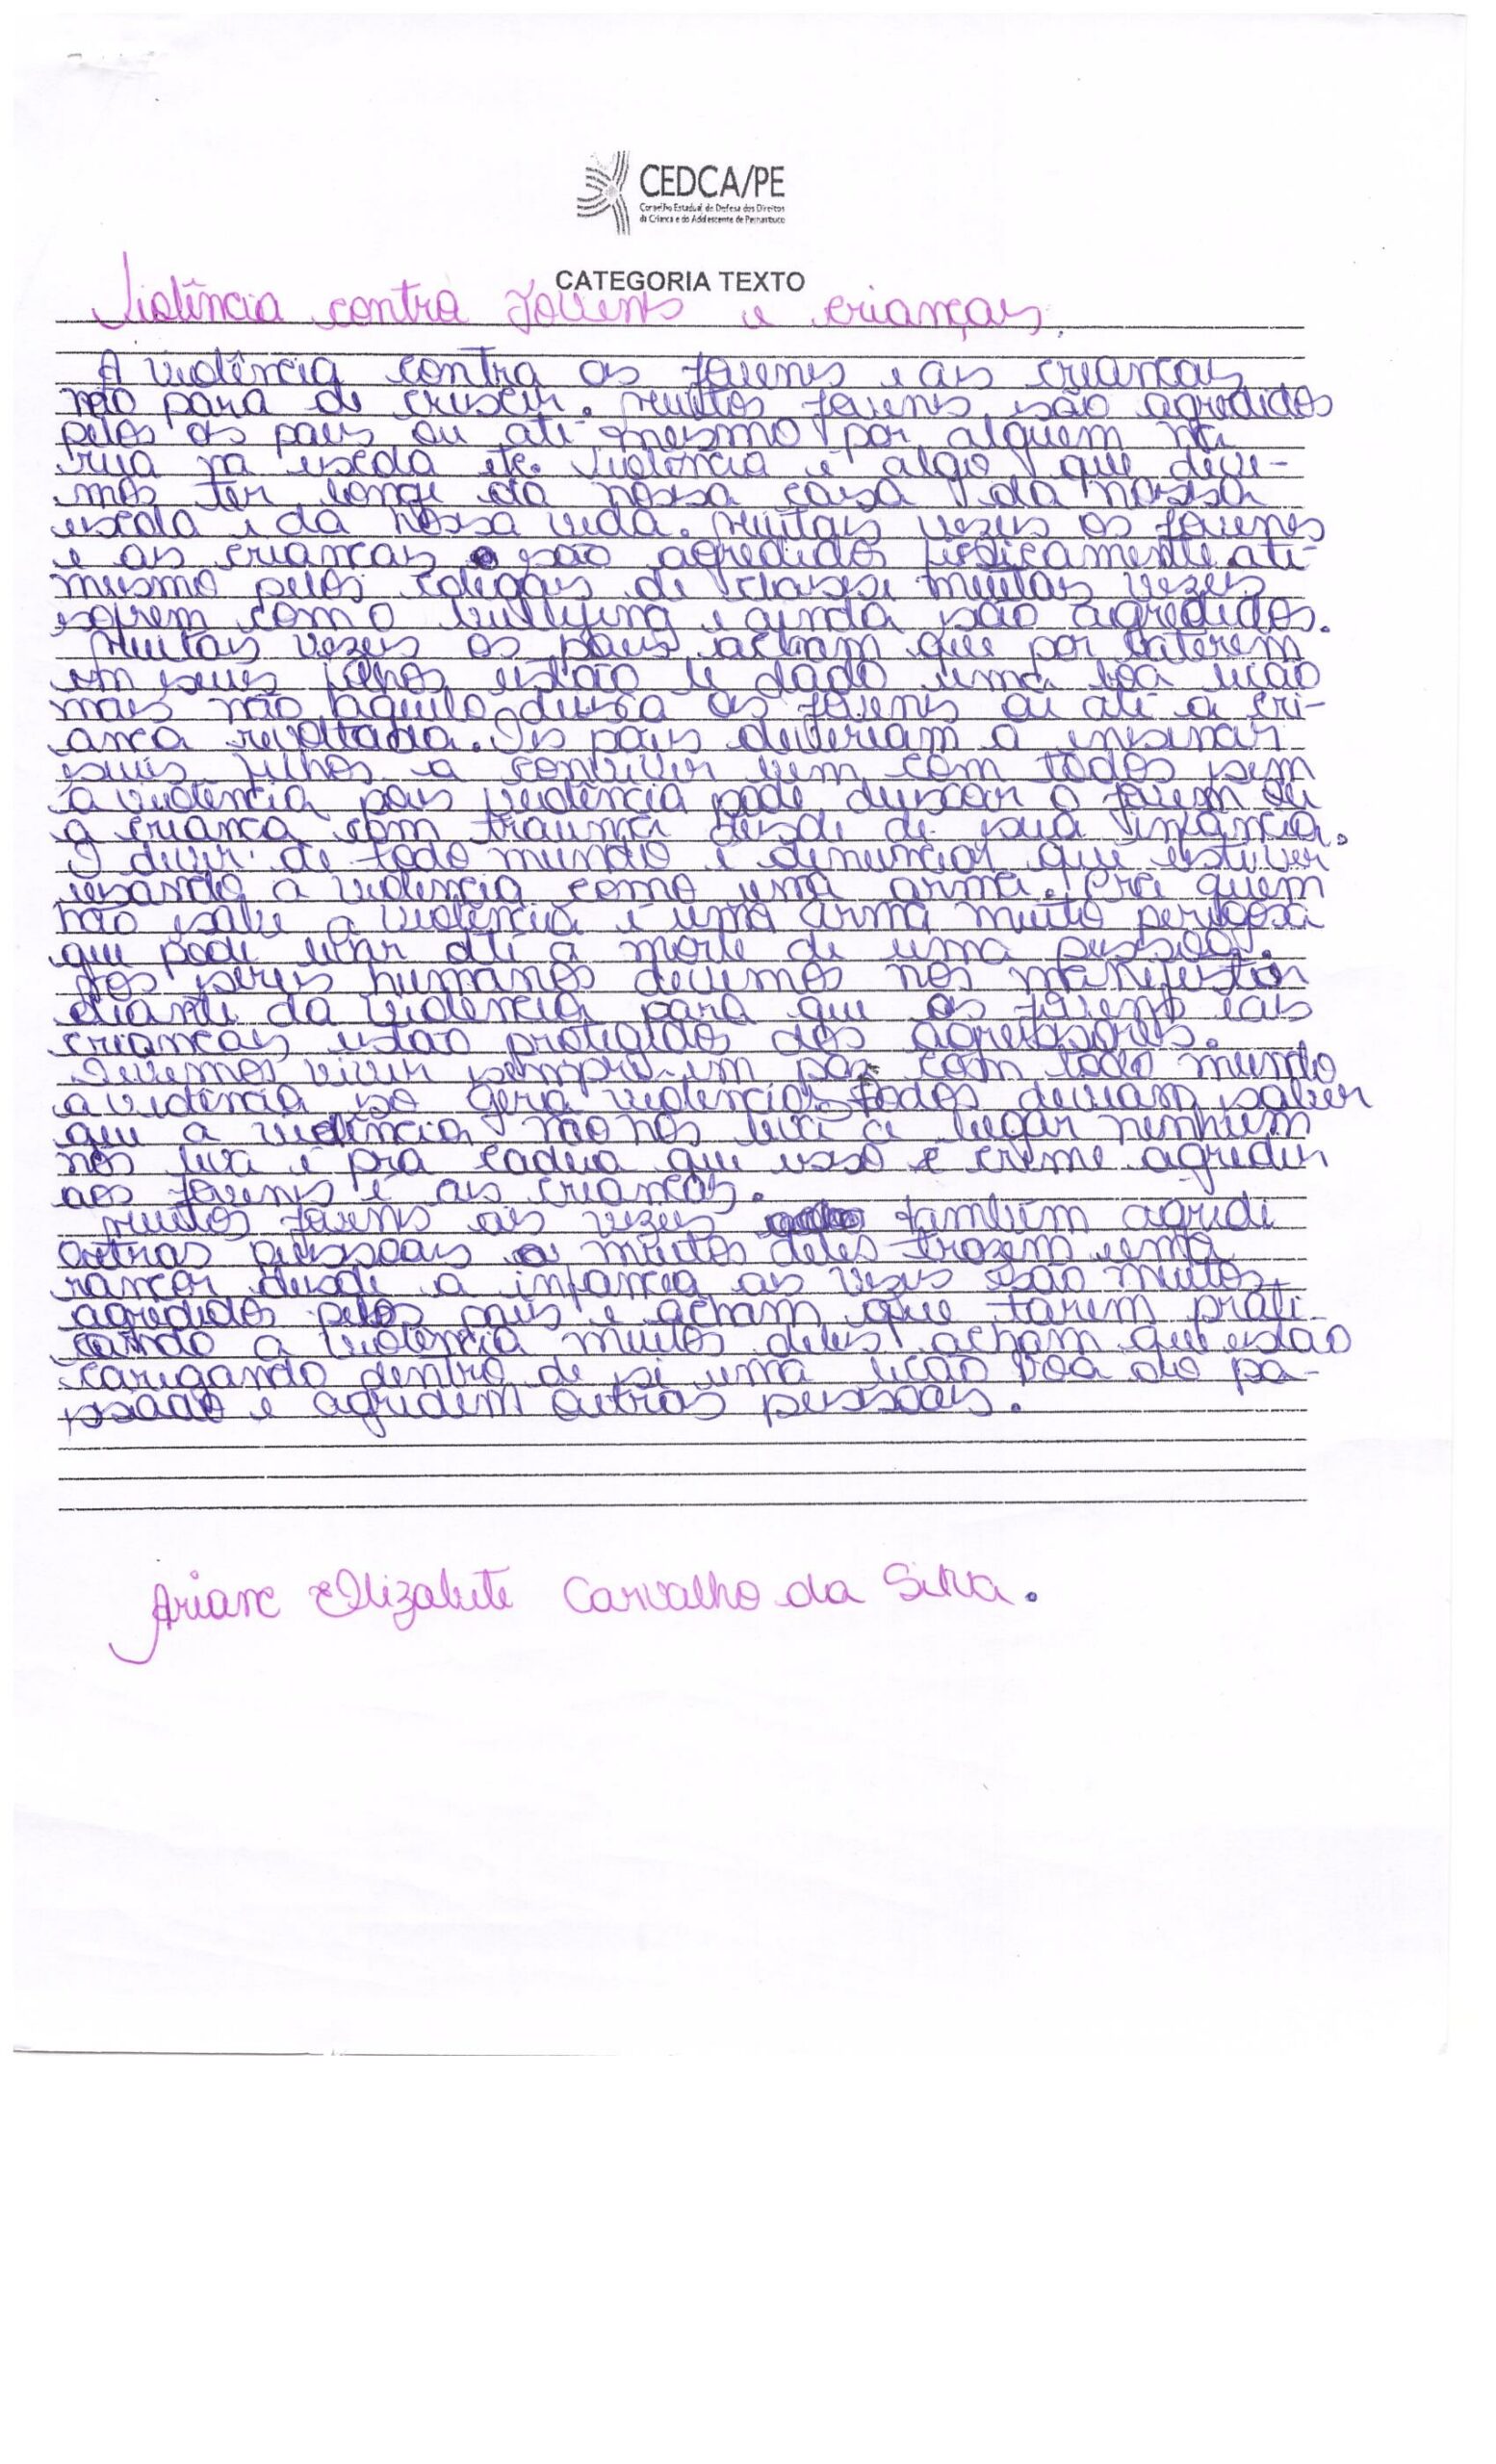 CEDCA/PE
Conselho Estadual de Defesa dos Direitos
da Criança e do Adolescente de Pernambuco
CATEGORIA TEXTO
Violência contra Jovens e crianças.
A violência contra os jovens e as criancas
não para de crescer. Muitos jovens são agredidos
pelos os pais ou até mesmo por alguem na
rua na escola etc. Violência é algo que deve-
mos ter longe da nossa casa da nossa
escola e da nossa vida. Muitas vezes os jovens
e as criancas são agredidos fisicamente até
mesmo pelos colegas de classe muitas vezes
sofrem com o bullying e ainda são agredidos.
Muitas vezes os pais acham que por baterem
em seus filhos estão le dado uma boa licão
mais não aquilo deixa os jovens ou até a cri-
anca revoltada. Os pais deveriam a ensinar
seus filhos a conviver bem com todos sem
a violência pois violência pode deixar o jovem ou
a crianca com trauma desde de sua infância.
O dever de todo mundo é denunciar que estiver
usando a violencia como uma arma. Pra quem
não sabe a violência é uma arma muito perigosa
que pode levar até a morte de uma pessoa.
Nos seres humanos devemos nos manifestar
diante da violência para que os jovens e as
criancas estão protegidos dos agressores.
Devemos viver sempre em paz com todo mundo
a violência so gera violencia todos deviam saber
que a violência não nos leva a lugar nenhum
nos leva é pra cadeia que isso é crime agredir
aos jovens e as criancas.
Muitos jovens as vezes também agredi
outras pessoas muitos deles trazem uma
rancor desde a infancia as vezes são muitos
agredidos pelos pais e acham que tarem prati
cando a violência muitos deles acham que estão
caregando dentro de si uma licão boa do pa-
ssado e agridem outras pessoas.
Ariane Elizabete Carvalho da Silva.